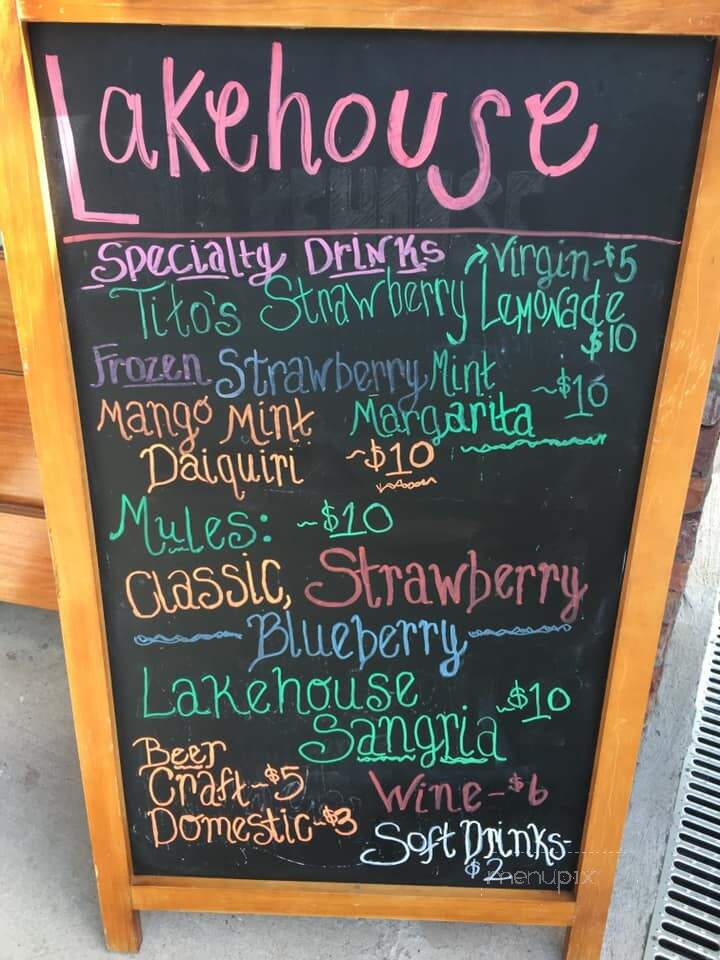 Lakehouse
LAKEHOUSE
Specialty Drinks
Virgin-$5
Tito's Strawberry Lemonade
$10
Frozen Strawberry Mint
Margarita ~$10
Mango Mint
Daiquiri ~$10
Mules: ~$10
Classic, Strawberry
Blueberry
Lakehouse
Sangria ~$10
Beer
Craft-$5
Domestic-$3
Wine-$6
Soft Drinks-
$2
menupix